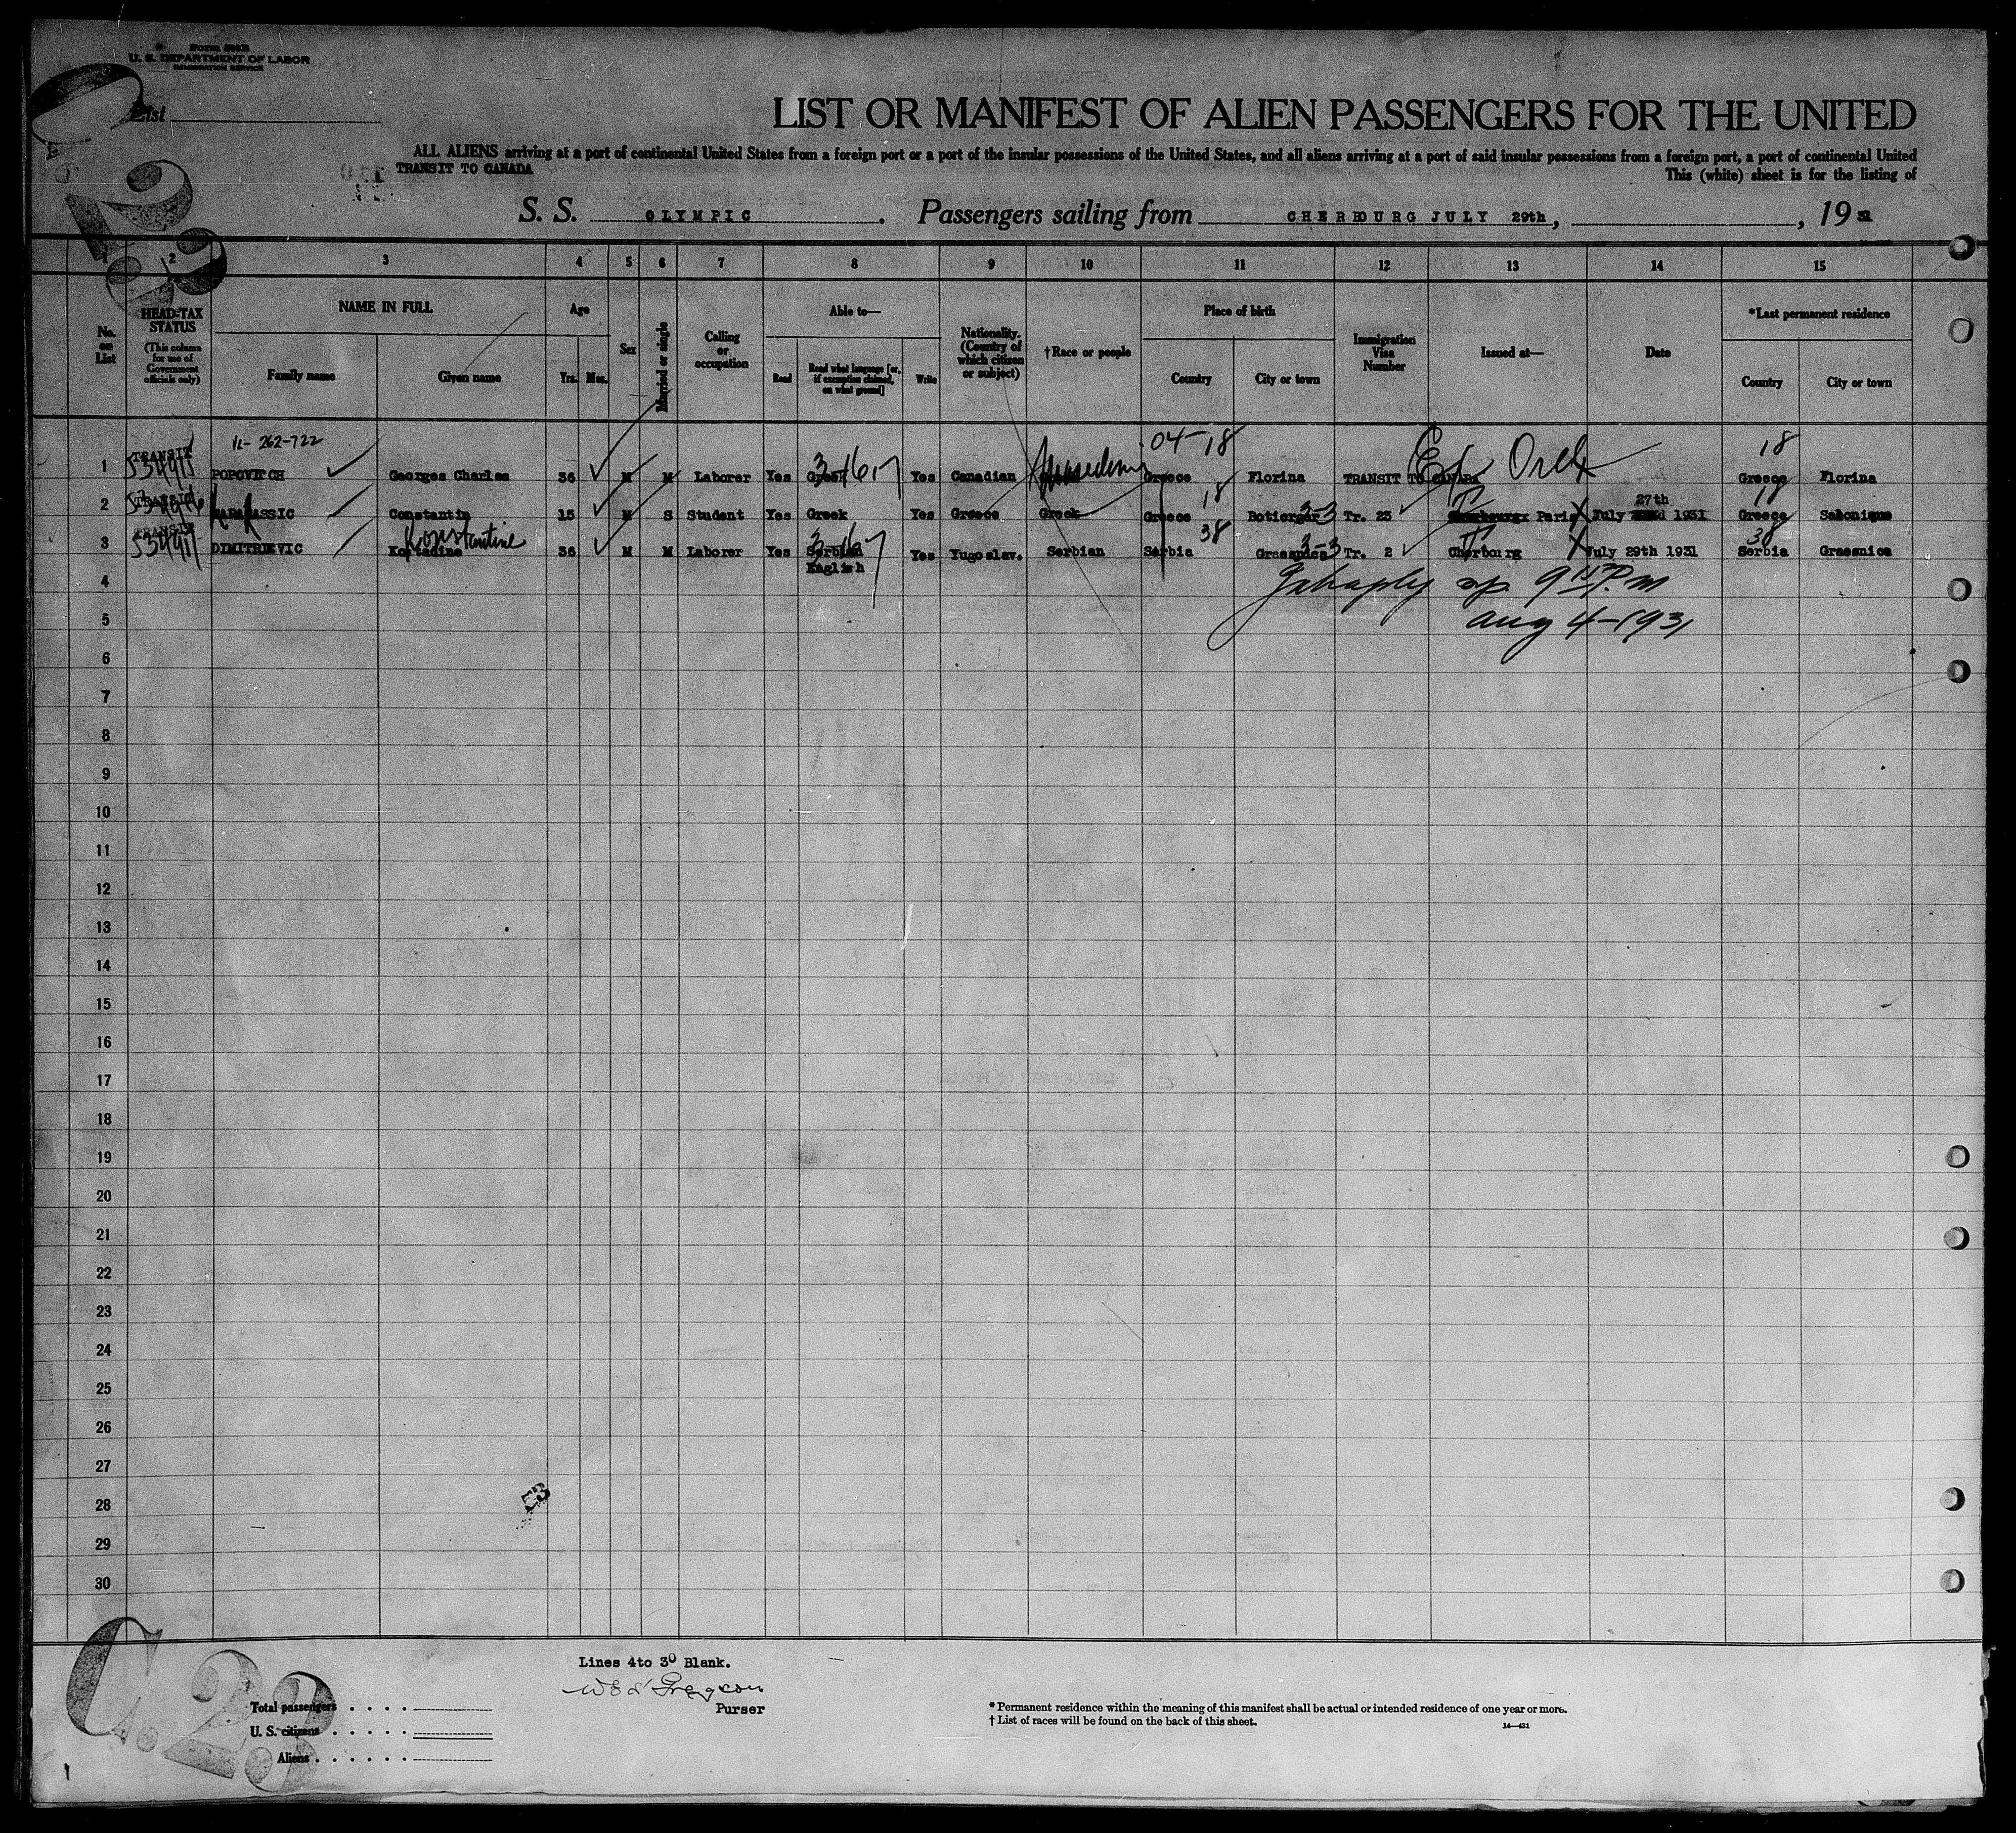 Form 500B
U. S. DEPARTMENT OF LABOR
IMMIGRATION SERVICE
List
LIST OR MANIFEST OF ALIEN PASSENGERS FOR THE UNITED
ALL ALIENS arriving at a port of continental United States from a foreign port or a port of the insular possessions of the United States, and all aliens arriving at a port of said insular possessions from a foreign port, a port of continental United
TRANSIT TO CANADA
This (white) sheet is for the listing of
S. S. OLYMPIC. Passengers sailing from CHERBOURG JULY 29th, , 19 31
1 2 3 4 5 6 7 8 9 10 11 12 13 14 15
No. on List
HEAD-TAX STATUS
(This column for use of Government officials only)
NAME IN FULL
Family name
Given name
Age
Yrs. Mos.
Sex
Married or single
Calling or occupation
Able to—
Read
Read what language [or, if exemption claimed, on what ground]
Write
Nationality. (Country of which citizen or subject)
†Race or people
Place of birth
Country
City or town
Immigration Visa Number
Issued at—
Date
*Last permanent residence
Country
City or town
262-722
04-18
18
1 TRANSIT POPOVITCH Georges Charles 36 M M Laborer Yes Greek Yes Canadian Greece Florina TRANSIT TO CANADA Greece Florina
18 27th 18
2 TRANSIT Constantin 15 M S Student Yes Greek Yes Greece Greek Greece Tr. 23 Paris July 1931 Greece Salonique
Konstantine 38 38
3 TRANSIT DIMITRIEVIC 36 M M Laborer Yes Serbian Yes Yugoslav. Serbian Serbia Graesnica Tr. 2 Cherbourg July 29th 1931 Serbia Graesnica
English
4
9 15 P.m
5
Aug 4-1931
6
7
8
9
10
11
12
13
14
15
16
17
18
19
20
21
22
23
24
25
26
27
28
53
29
30
C. 23
Lines 4to 30 Blank.
Gregson
Purser
Total passengers
U. S. citizens
Aliens
* Permanent residence within the meaning of this manifest shall be actual or intended residence of one year or more.
† List of races will be found on the back of this sheet.
14—431